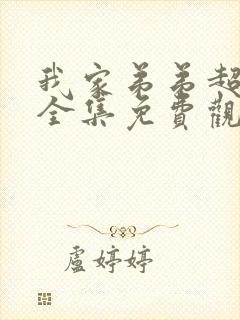 我家弟弟超
全集免費觀
盧婷婷